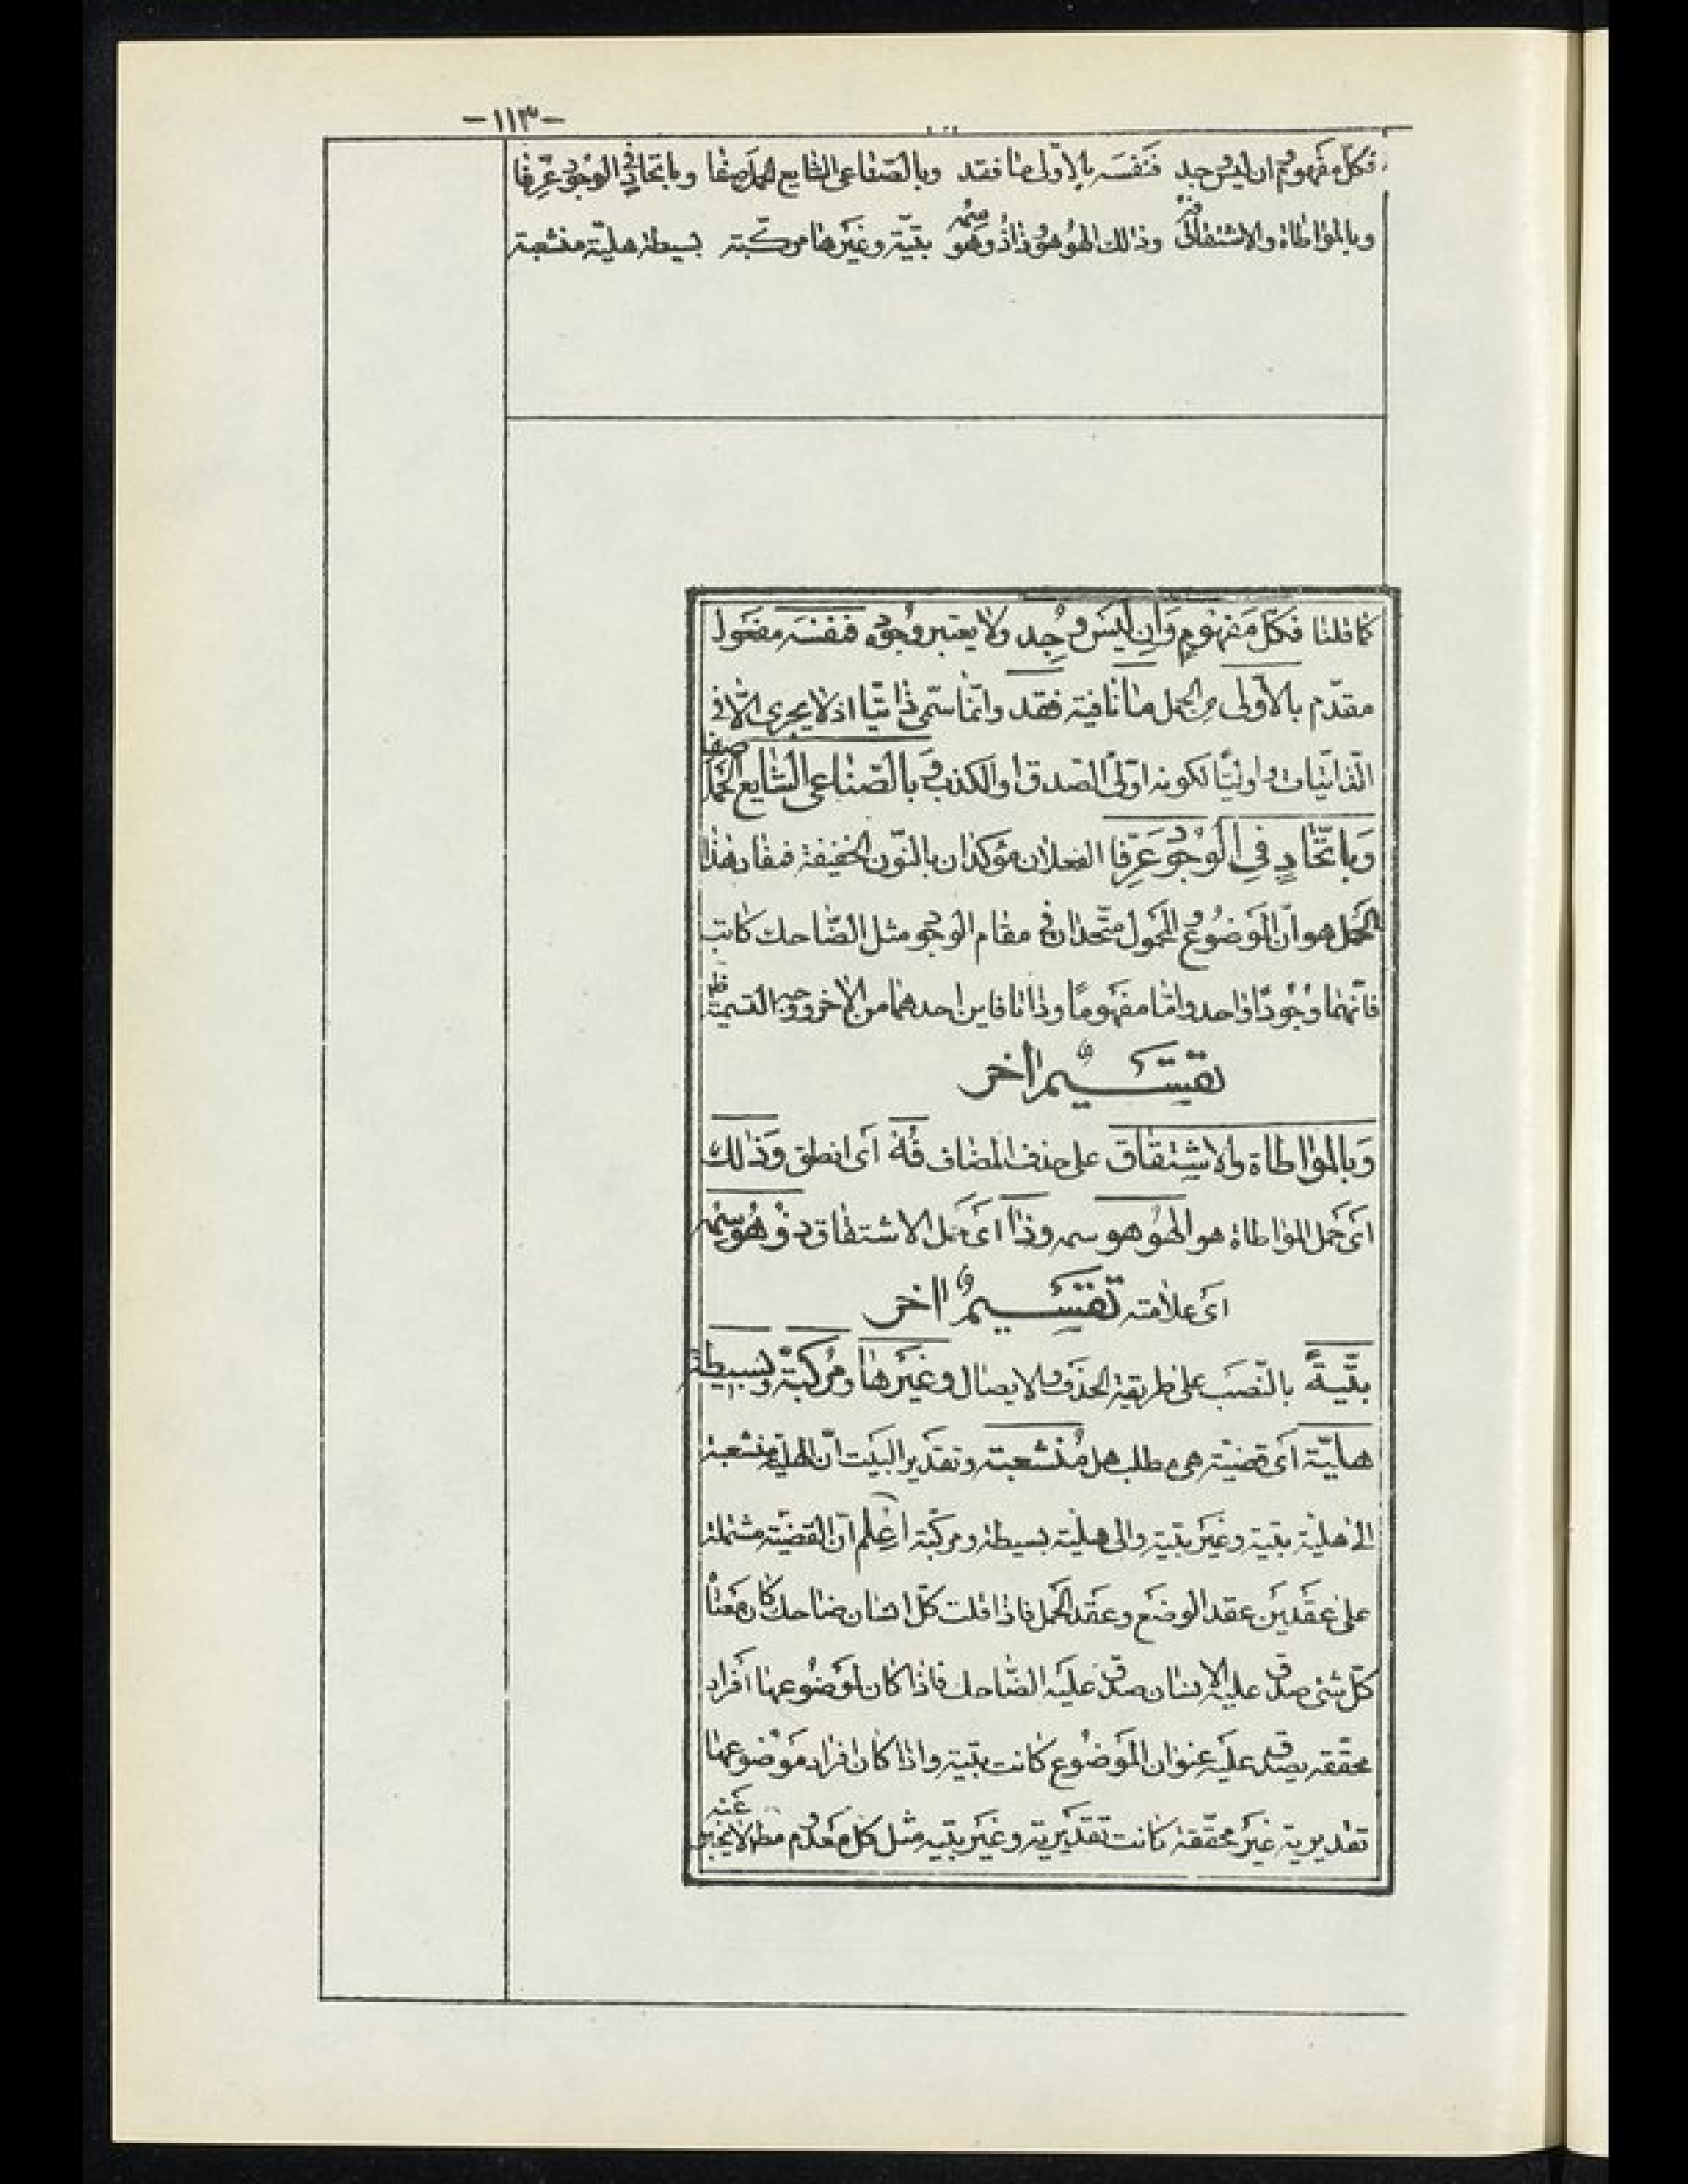 -١١٣-
فكل مفهوم ان ليس وجد فنفسه بالاولى ما فقد وبالصناعى الشايع الحمل صفا وباتحاد فى الوجود عرفا
وبالمواطاة والاشتقاق فه وذالك الهو هو وذا ذو هو سمه بتية وغيرها مركبة بسيطة هلية منشعبة
كما قلنا فكل مفهوم وان ليس وجد ولا يعتبر وجوده فنفسه مفعول
مقدم بالاولى من الحمل ما نافية فقد وانما سمى ذاتيا اذ لا يجرى الا فى
الذاتيات واوليا لكونه اولى الصدق او الكذب و بالصناعى الشايع الحمل صفا
وباتحاد فى الوجود عرفا الفعلان مؤكدان بالنون الخفيفة فمفاد هذا
الحمل هو ان الموضوع والمحمول متحدان فى مقام الوجود مثل الضاحك كاتب
فانهما وجودا واحد واما مفهوما وذاتا فاين احدهما من الاخر ووجه التسمية ظ
تقسيم اخر
وبالمواطاة والاشتقاق على حذف المضاف فه اى انطق وذالك
اى حمل المواطاة هو الهو هو سمه وذا اى حمل الاشتقاق ذو هو سمه
اى علامته تقسيم اخر
بتية بالنصب على طريقة الحذف والايصال وغيرها ومركبة وبسيطة
هلية اى قضية هى مطلب هل منشعبة وتقدير البيت ان الهلية منشعبة
الى هلية بتية وغير بتية والى هلية بسيطة ومركبة اعلم ان القضية مشتملة
على عقدين عقد الوضع وعقد الحمل فاذا قلت كل انسان ضاحك كان معناه
كل شئ صدق عليه الانسان صدق عليه الضاحك فاذا كان لموضوعها افراد
محققه يصدق عليه عنوان الموضوع كانت بتية واذا كان افراد موضوعها
تقديرية غير محققة كانت تقديرية وغير بتيه مثل كل معدوم مطلق لا يخبر عنه